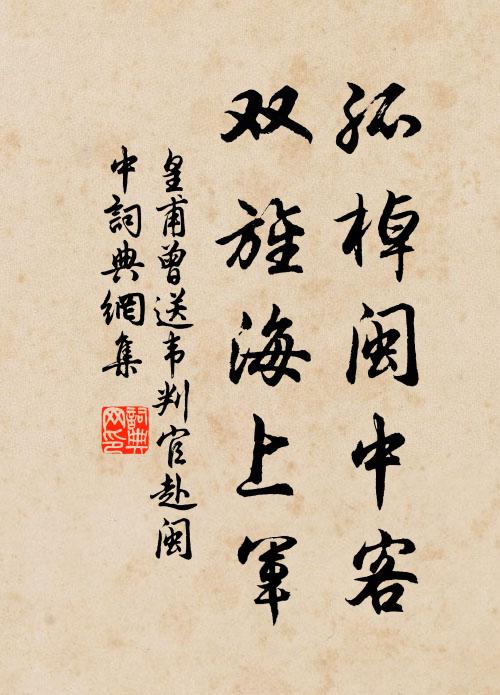 孤棹闽中客
双旌海上军
皇甫曾送韦判官赴闽
中詞典網集
詞典
网印